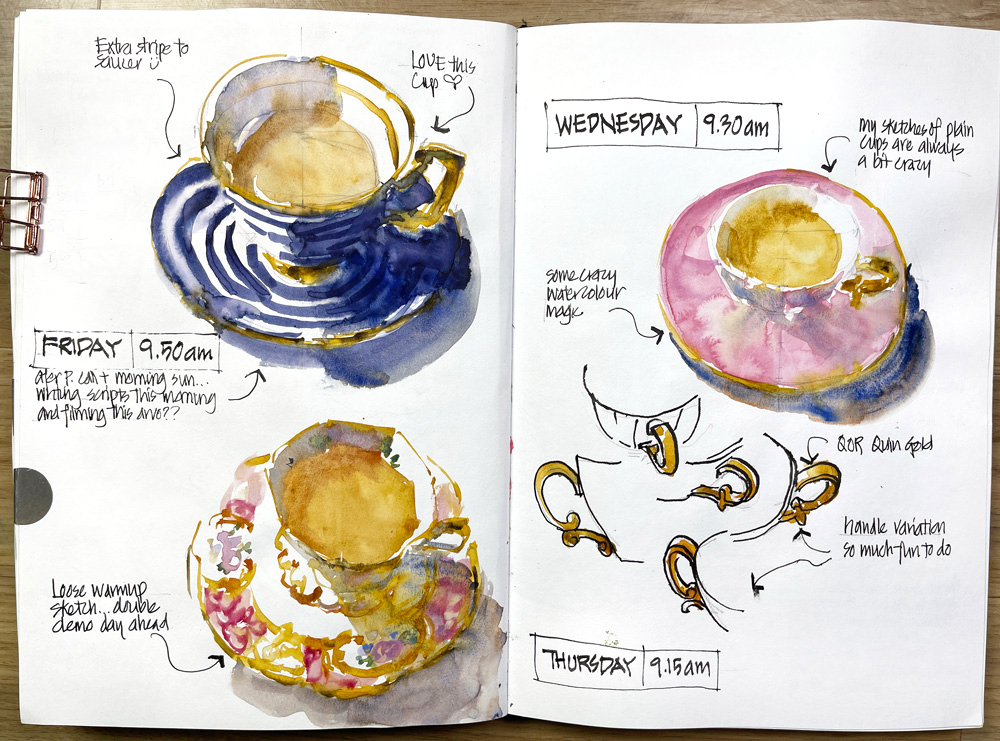 Extra stripe to
saucer
LOVE this
cup
FRIDAY 9.50am
after P. con + morning sun...
writing scripts this morning
and filming this arvo??
Loose warmup
sketch... double
demo day ahead
WEDNESDAY 9.30am
my sketches of plain
cups are always
a bit crazy
some crazy
watercolour
magic
QOR Quin Gold
handle variation
so much fun to do
THURSDAY 9.15am